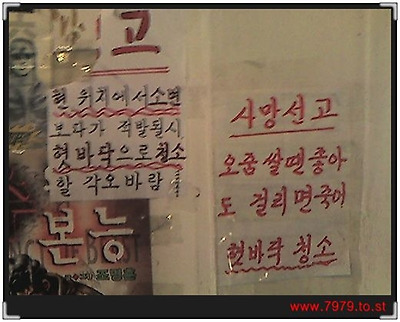 고
현 위치에서소변
보다가 적발될시
혓바닥으로청소
할 각오바람
본능
사망선고
오줌 쌀땐 좋아
도 걸리면죽어
혓바닥 청소
www.7979.to.st